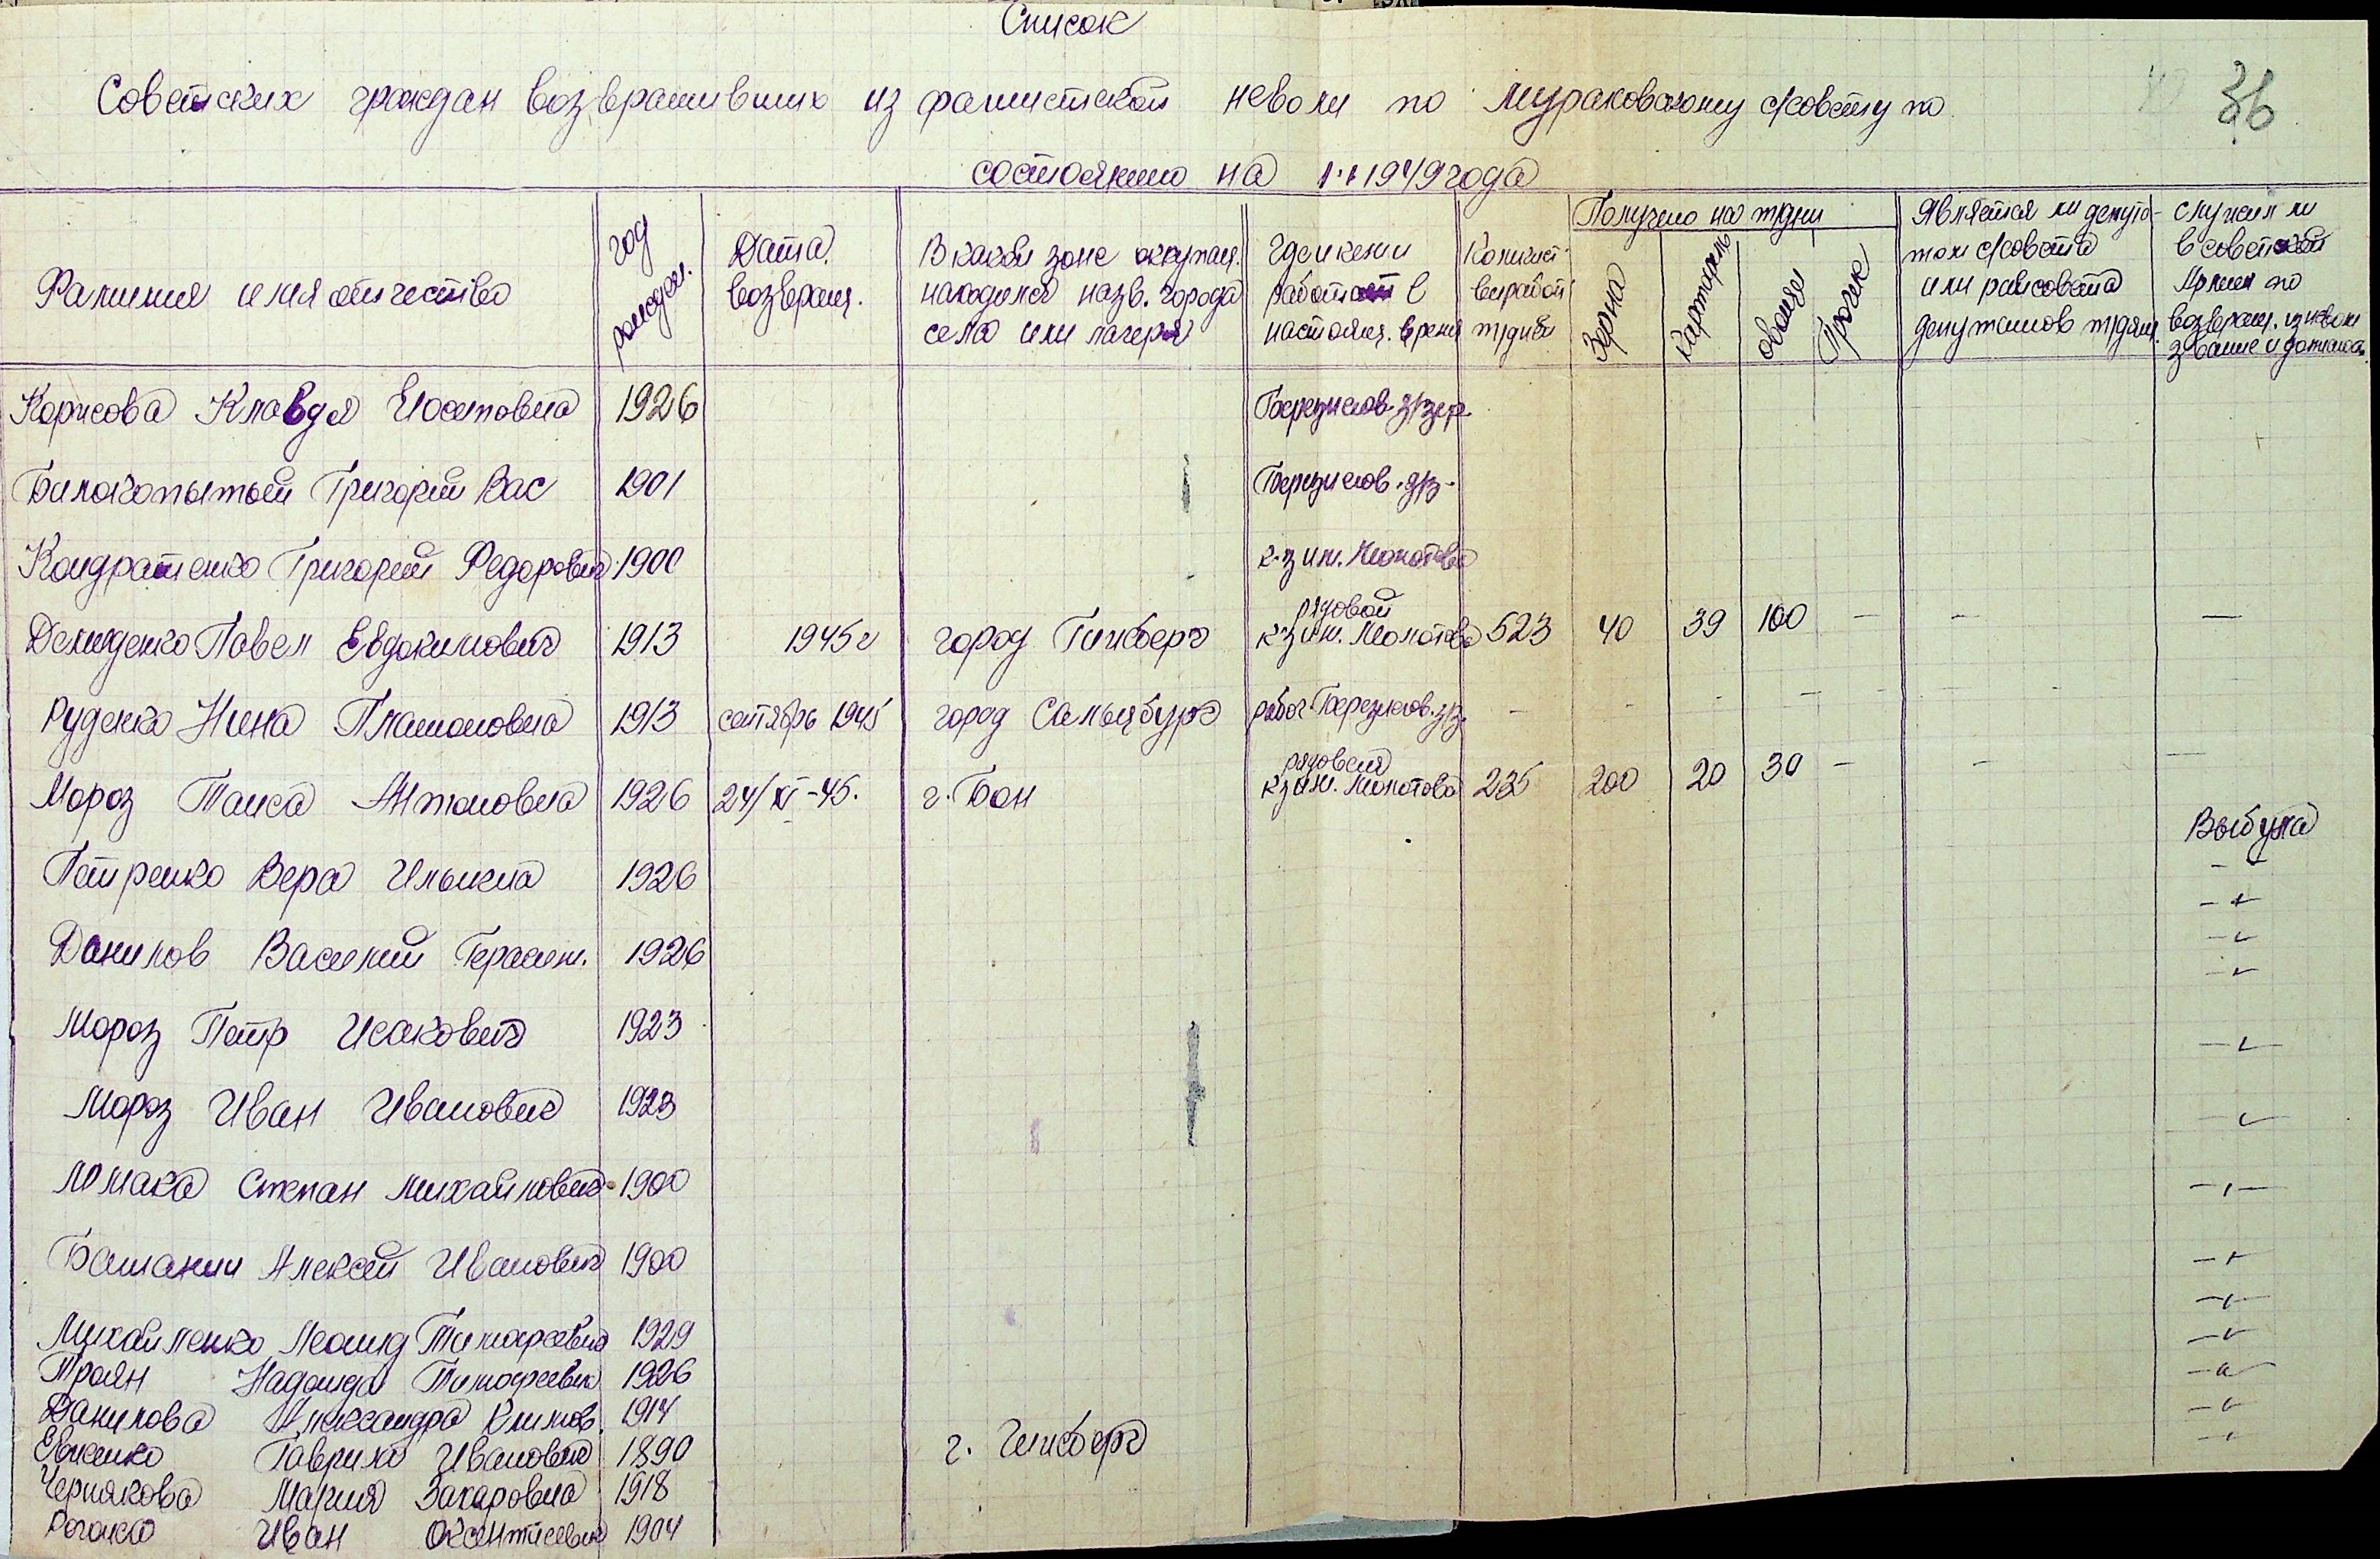 Список
Советских граждан возвративших из фашистской неволи по Мураковскому с/совету по
36
состоянию на 1.1 1949 года
Фамилия имя отчество
год рожден.
Дата возвращ.
В какой зоне оккупац. находился назв. города села или лагеря
Где и кем работает в настоящ. время
Количест. выработ трдней
Получено на трдни
Зерна
Картофель
овощей
Прочих
Является ли депута-том с/совета или райсовета депутатов трудящ.
служил ли в советской Армии по возвращ. из неволи звание и должность
Клавдя 1926
Григорий Вас 1901
Кондратенко Григорий Федорович 1900 к-з им. Молотова
Демиденко Павел Евдокимович 1913 1945 г город рядовой к-з им. Молотова 523 40 39 100 — — —
Руденко Нина Платоновна 1913 сентябрь 1945 город Сальцбург рабоч - - - — -
Мороз Таиса Антоновна 1926 24/XI-45. г. Бон рядовая к-з им. Молотова 235 200 20 30 - - —
Выбула
Петренко Вера Ильична 1926 - -
Данилов Василий Герасим. 1926
Мороз Петр Исакович 1923
Мороз Иван Иванович 1923
Ломака Степан Михайлович 1900
Алексей Иванович 1900
Михайленко Леонид Тимофеевич 1929
Троян Надежда Тимофеевн 1926
Данилова Александра Климов. 1914
Евсенко Гаврило Иванович 1890 г.
Чернякова Мария Захаровна 1918
Иван Оксентиевич 1904